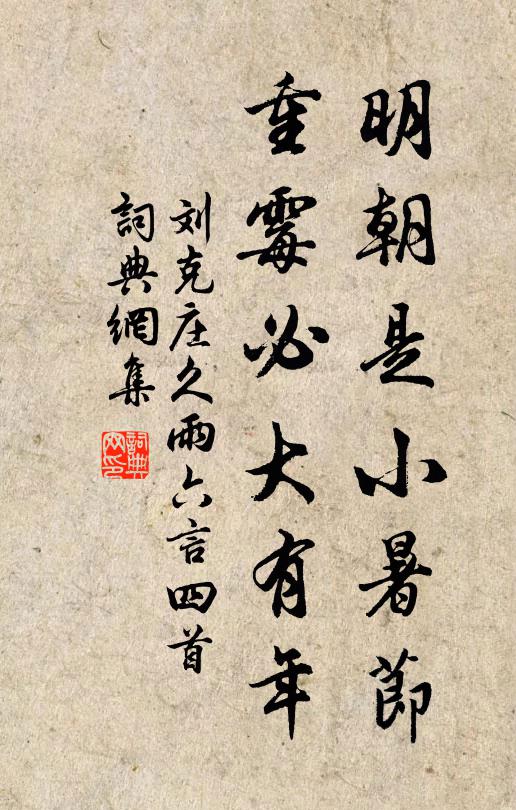 明朝是小暑節
重霉必大有年
刘克庄久雨六言四首
詞典網集
詞典網印